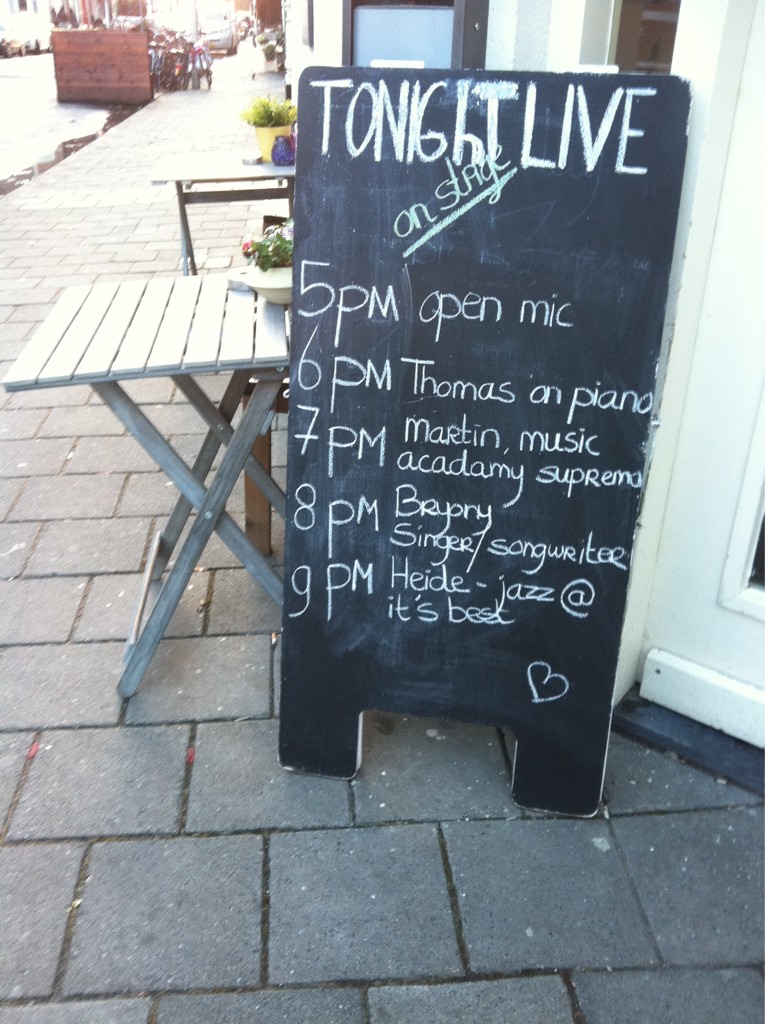 TONIGHT LIVE
on stage
5PM open mic
6PM Thomas on piano
7PM Martin, music
acadamy supremo
8PM Brypny
Singer/songwriter
9PM Heide - jazz @
it's best